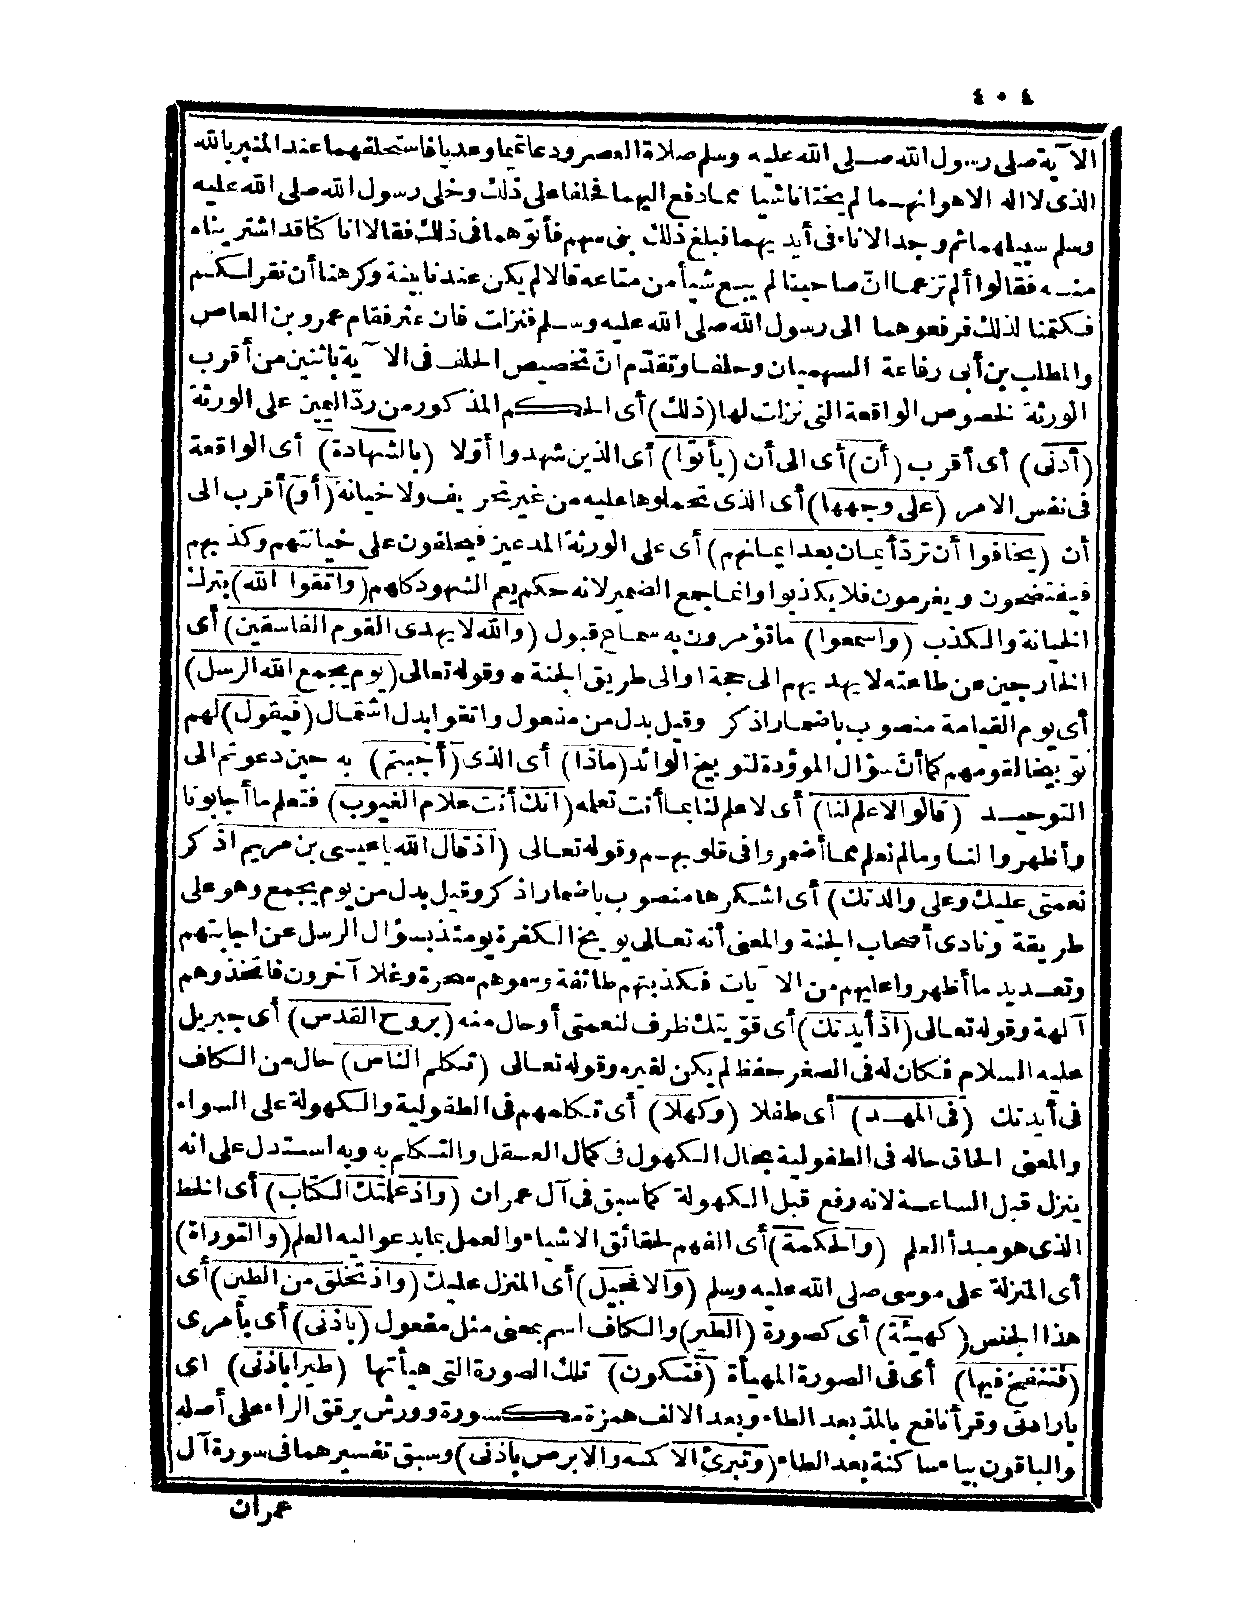 ٤٠٤
الآية صلى رسول الله صلى الله عليه وسلم صلاة العصر ودعا تميما وعديا فاستحلفهما عند المنبر بالله
الذى لا اله الا هو انهما لم يختانا شيا مما دفع اليهما فحلفا على ذلك وخلى رسول الله صلى الله عليه
وسلم سبيلهما ثم وجد الاناء فى أيديهما فبلغ ذلك بنى سهم فأتوهما فى ذلك فقالا انا كنا قد اشتريناه
منه فقالوا ألم تزعما انّ صاحبنا لم يبع شيأ من متاعه قالا لم يكن عندنا بينة وكرهنا أن نقر لكم
فكتمنا لذلك فرفعوهما الى رسول الله صلى الله عليه وسلم فنزلت فان عثر فقام عمرو بن العاص
والمطلب بن أبى رفاعة السهميان وحلفا وتقدّم انّ تخصيص الحلف فى الآية باثنين من أقرب
الورثة لخصوص الواقعة التى نزلت لها (ذلك) أى الحكم المذكور من ردّ اليمين على الورثة
(أدنى) أى أقرب (أن) أى الى أن (يأتوا) أى الذين شهدوا أوّلا (بالشهادة) أى الواقعة
فى نفس الامر (على وجهها) أى الذى تحملوها عليه من غير تحريف ولا خيانة (أو) أقرب الى
أن (يخافوا أن تردّ أيمان بعد ايمانهم) أى على الورثة المدعين فيحلفون على خيانتهم وكذبهم
فيفتضحون ويغرمون فلا يكذبوا وانما جمع الضمير لانه حكم يعم الشهود كلهم (واتقوا الله) بترك
الخيانة والكذب (واسمعوا) ما تؤمرون به سماع قبول (والله لا يهدى القوم الفاسقين) أى
الخارجين عن طاعته لا يهديهم الى حجة اوالى طريق الجنة * وقوله تعالى (يوم يجمع الله الرسل)
أى يوم القيامة منصوب باضمار اذكر وقيل بدل من مفعول واتقوا بدل اشتمال (فيقول) لهم
توبيخا لقومهم كما أنّ سؤال الموؤدة لتوبيخ الوائد (ماذا) أى الذى (أجبتم) به حين دعوتم الى
التوحيد (قالوا لا علم لنا) أى لا علم لنا بما أنت تعلمه (انك أنت علام الغيوب) فتعلم ما أجابونا
وأظهروا لنا وما لم نعلم مما أضمروا فى قلوبهم وقوله تعالى (اذ قال الله يا عيسى بن مريم اذكر
نعمتى عليك وعلى والدتك) أى اشكرها منصوب باضمار اذكر وقيل بدل من يوم يجمع وهو على
طريقة ونادى أصحاب الجنة والمعنى أنه تعالى يوبخ الكفرة يومئذ بسؤال الرسل عن اجابتهم
وتعديد ما أظهروا عليهم من الآيات فكذبتهم طائفة وسموهم سحرة وغلا آخرون فاتخذوهم
آلهة وقوله تعالى (اذ أيدتك) أى قوّيتك ظرف لنعمتى أو حال منه (بروح القدس) أى جبريل
عليه السلام فكان له فى الصغر حفظ لم يكن لغيره وقوله تعالى (تكلم الناس) حال من الكاف
فى أيدتك (فى المهد) أى طفلا (وكهلا) أى تكلمهم فى الطفولية والكهولة على السواء
والمعنى الحاق حاله فى الطفولية بحال الكهول فى كمال العقل والتكلم به وبه استدل على انه
ينزل قبل الساعة لانه رفع قبل الكهولة كما سبق فى آل عمران (واذ علمتك الكتاب) أى الخط
الذى هو مبدأ العلم (والحكمة) أى الفهم لحقائق الاشياء والعمل بما يدعو اليه العلم (والتوراة)
أى المنزلة على موسى صلى الله عليه وسلم (والانجيل) أى المنزل عليك (واذ تخلق من الطين) أى
هذا الجنس (كهيئة) أى كصورة (الطير) والكاف اسم بمعنى مثل مفعول (باذنى) أى بأمرى
(فتنفخ فيها) أى فى الصورة المهيأة (فتكون) تلك الصورة التى هيأتها (طيرا باذنى) اى
بارادتى وقرأ نافع بالمدّ بعد الطاء وبعد الالف همزة مكسورة وورش يرقق الراء على أصله
والباقون بياء ساكنة بعد الطاء (وتبرئ الاكمه والابرص باذنى) وسبق تفسيرهما فى سورة آل
عمران